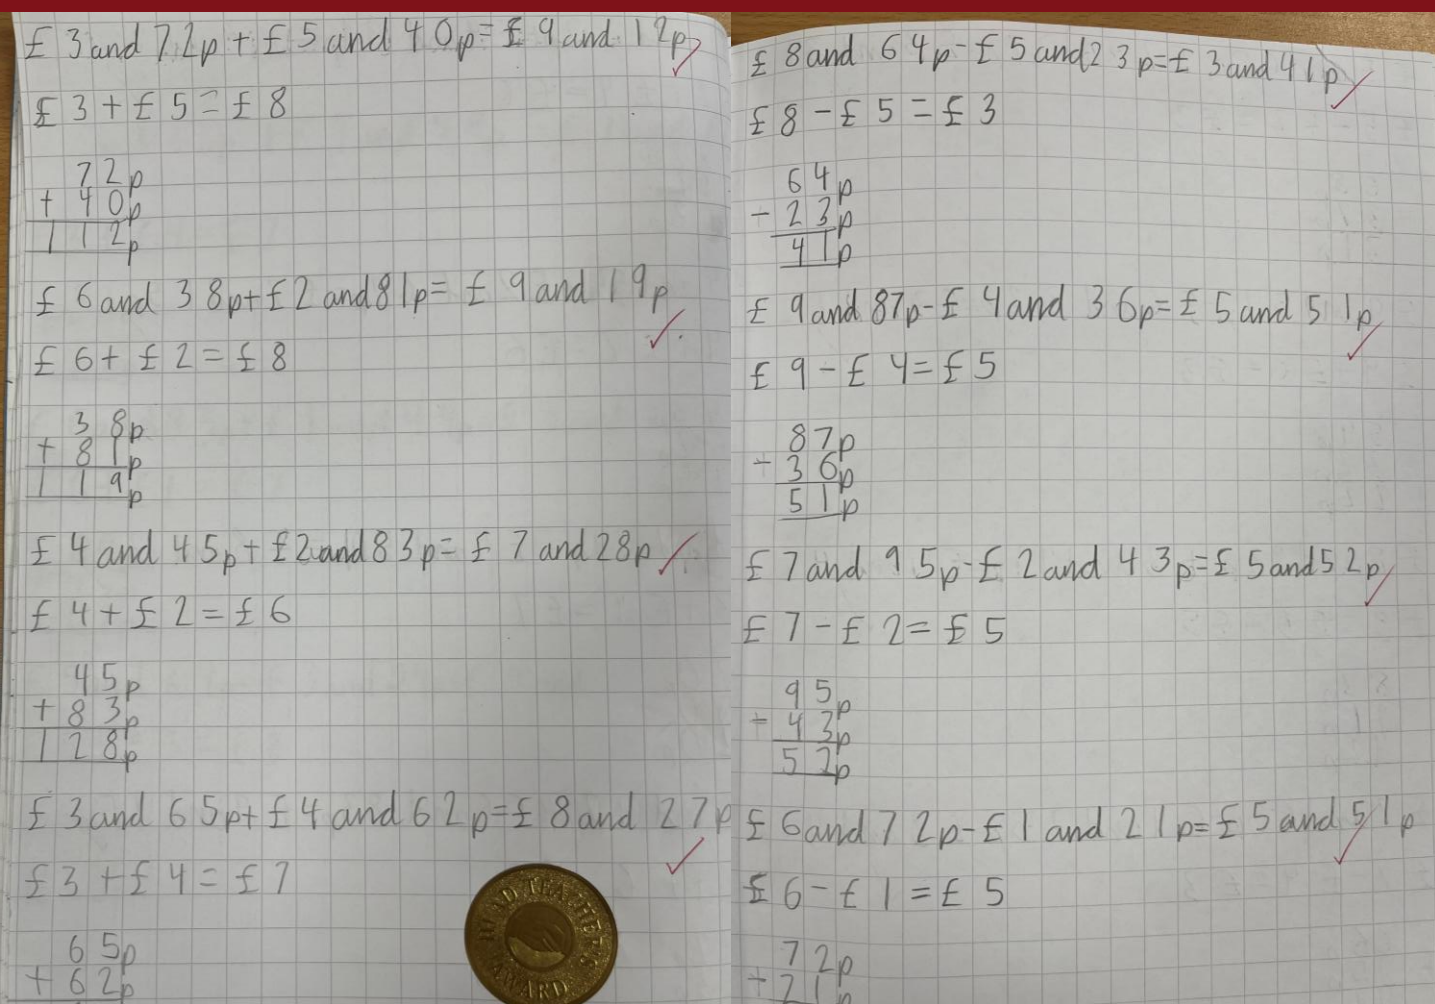 £3 and 72p + £5 and 40p = £9 and 12p
£3 + £5 = £8
72p
+ 40p
112p
£6 and 38p + £2 and 81p = £9 and 19p
£6 + £2 = £8
38p
+ 81p
119p
£4 and 45p + £2 and 83p = £7 and 28p
£4 + £2 = £6
45p
+ 83p
128p
£3 and 65p + £4 and 62p = £8 and 27p
£3 + £4 = £7
65p
+ 62p
HEAD TEACHER'S
AWARD
£8 and 64p - £5 and 23p = £3 and 41p
£8 - £5 = £3
64p
- 23p
41p
£9 and 87p - £4 and 36p = £5 and 51p
£9 - £4 = £5
87p
- 36p
51p
£7 and 95p - £2 and 43p = £5 and 52p
£7 - £2 = £5
95p
- 43p
52p
£6 and 72p - £1 and 21p = £5 and 51p
£6 - £1 = £5
72p
- 21p